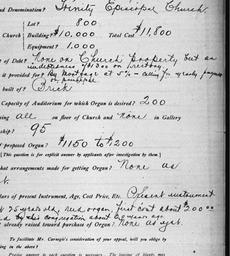 nd Denomination? Trinity Episcopal Church
Lot? 800
Church Building? $10,000 Total Cost $11,800
Equipment? 1.000
of Debt? None on Church property but an
indebtedness of $1300 on Rectory.
is it provided for? By Mortgage at 5% -
built of? Brick
Capacity of Auditorium for which Organ is desired? 200
ing all on floor of Church and none in Gallery
ship? 95
f proposed Organ? $1150 to $1200
[This question is for explicit answer by applicants after investigation by them]
hat arrangements made for getting Organ? None as
t.
lars of present instrument, Age, Cost Price, Etc. Present instrument
25 years old, reed organ, first cost about $200.00
by this Congregation about years ago
already raised toward purchase of Organ? None as yet.
To facilitate Mr. Carnegie's consideration of your appeal, will you oblige by filling
in the above?